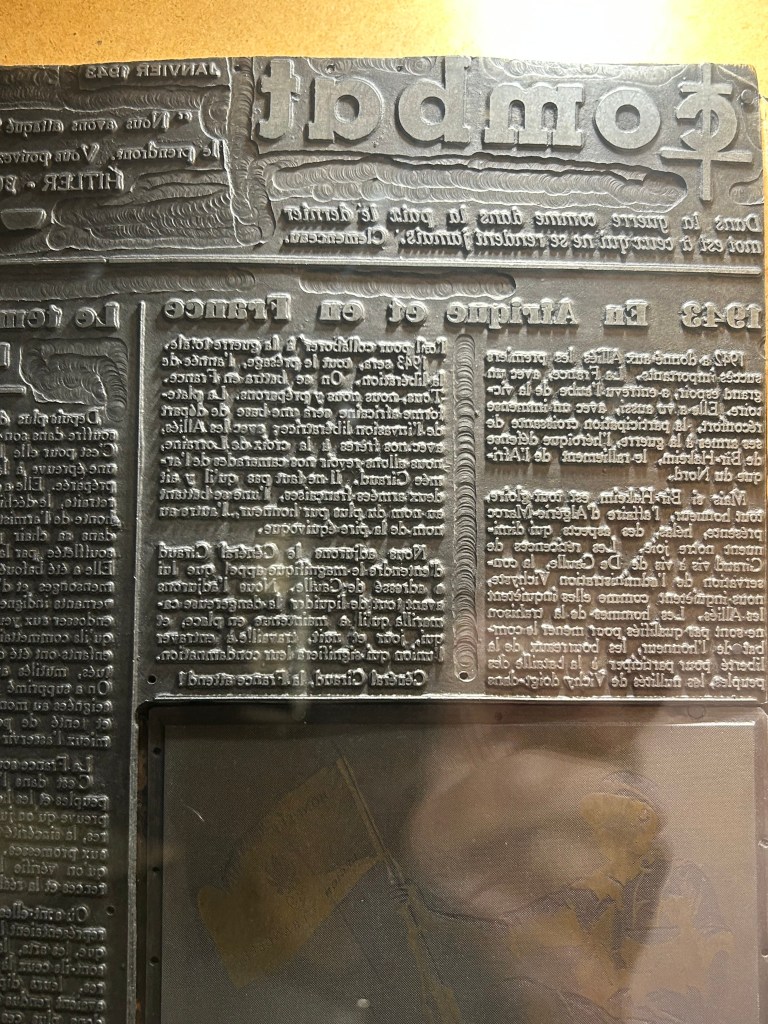 Combat
Dans la guerre comme dans la paix le dernier
mot est à ceux qui ne se rendent jamais. Clemenceau.
JANVIER 1943
"Nous avons attaqué
le prendront. Vous pouvez
HITLER - 
1943 En Afrique et en France
1942 a donné aux Alliés les premiers
succès importants. La France, avec un
grand espoir, a entrevu l'aube de la vic-
toire. Elle a vu aussi, avec un immense
réconfort, la participation croissante de
ses armées à la guerre, l'héroïque défense
de Bir-Hakeim, le ralliement de l'Afri-
que du Nord.
Mais si Bir-Hakeim est tout gloire,
tout honneur, l'affaire d'Algérie-Maroc
présente, hélas, des aspects qui dimi-
nuent notre joie. Les réticences de
Giraud vis à vis de De Gaulle, la con-
servation de l'administration Vichyste
nous inquiètent comme elles inquiètent
les Alliés. Les hommes de la trahison
ne sont pas qualifiés pour mener le com-
bat de l'honneur, les bourreaux de la
liberté pour participer à la bataille des
peuples, les nullités de Vichy dans
l'œil pour collaborer à la guerre totale.
1943 sera, tout le présage, l'année de
la libération. On se battra en France.
Tous, nous nous y préparons. La plate-
forme africaine sera une base de départ
de l'invasion libératrice; avec les Alliés,
avec nos frères à la croix de Lorraine,
nous allons revoir nos camarades de l'ar-
mée Giraud. Il ne faut pas qu'il y ait
deux armées françaises, l'une se battant
au nom du plus pur honneur, l'autre au
nom de la pire équivoque.
Nous adjurons le Général Giraud
d'entendre le magnifique appel que lui
a adressé de Gaulle. Nous l'adjurons
avant tout de liquider la dangereuse ca-
marilla qu'il a maintenue en place, et
qui, jour et nuit, travaille à entraver
l'union qui signifiera leur condamnation.
Général Giraud, la France attend !
Le tem
Depuis plus d
contre dans son
C'est pour elle
une épreuve à la
préparée. Elle a
retraite, le
honte de l'armist
dans sa chair
souffle par la
Elle a été
mensonges et d'
vernants indigne
endosser aux yeux
qu'ils commettaient
enfants ont été
tués, mutilés
On a supprimé
ceignées au mon
et tenté de
mieux l'asservir
La France
C'est dans l'
peuples & les
preuve qu'on ju
res, la sincérité
aux promesses
qu'on vérifie
rences et la réel
Où sont-elles
représentaient
que, les arts, le
sont-ils ceux
res, leurs
avaient rendu